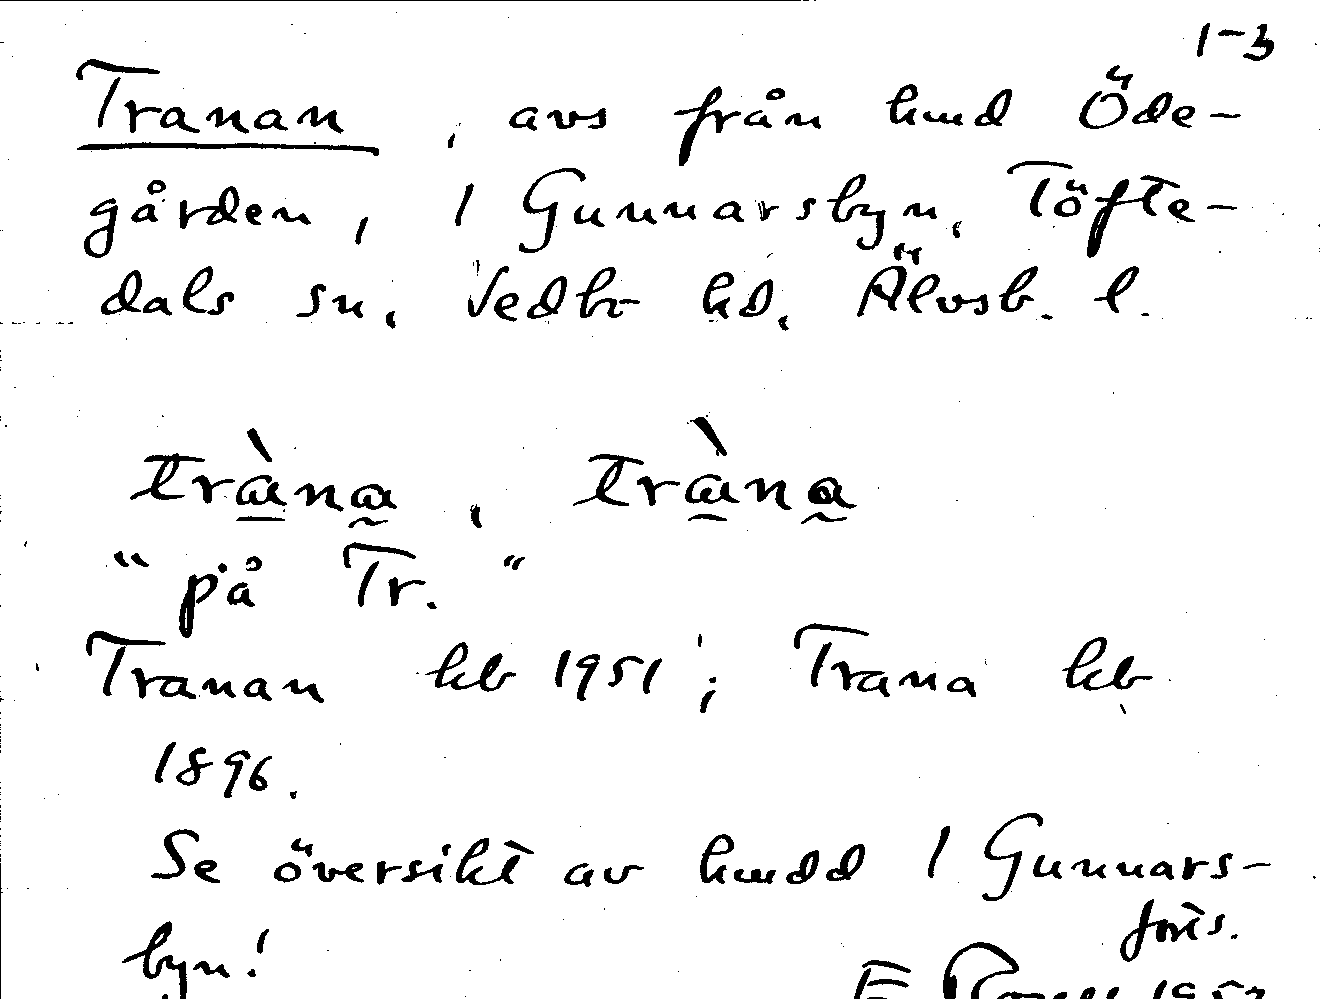 1-3
Tranan, avs från hmd Öde-
gården, 1 Gunnarsbyn, Töfte-
dals sn, Vedbo hd, Älvsb. l.
tràna, tràna
"på Tr."
Tranan kb 1951; Trana kb
1896.
Se översikt av hmdd 1 Gunnars-
byn!
forts.
E 1953